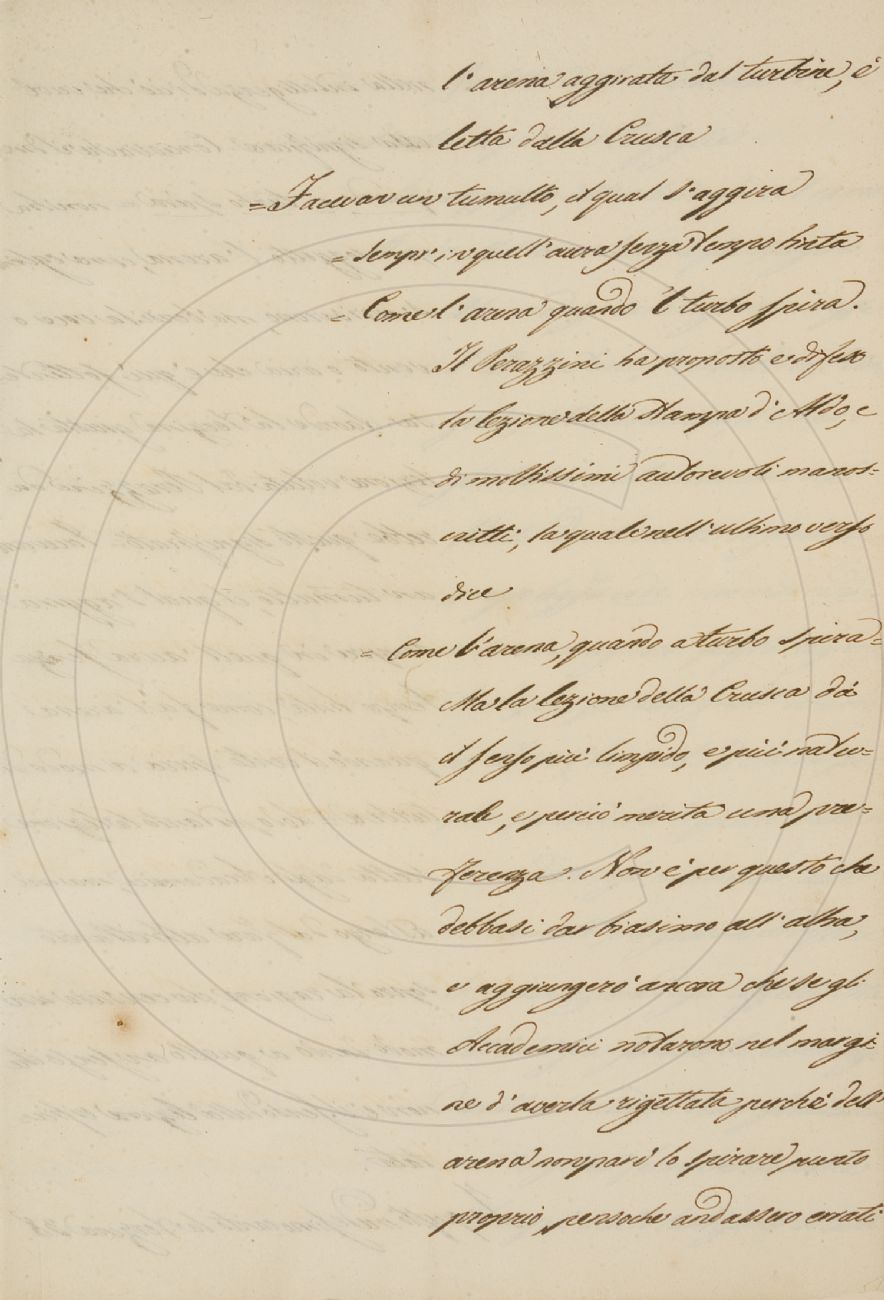 l'arena aggirata dal turbine, è
letta dalla Crusca
= Facevan un tumulto, il qual s'aggira
= Sempr' in quell'aura senza tempo tinta
= Come l'arena quando 'l turbo spira.
Il Perazzini ha proposto e difeso
la lezione della stampa d'Aldo, e
di moltissimi autorevoli manos=
critti, la quale nell'ultimo verso
dice
= Come l'arena, quando a turbo spira=
Ma la lezione della Crusca dà
il senso più limpido, e più natu=
rale, e perciò merita una pre=
ferenza. Non è per questo che
debbasi dar biasimo all'altra,
e aggiungerò ancora che se gli
Accademici notarono nel margi=
ne d'averla rigettata perchè dell'
arena non pare lo spirare punto
proprio, pensoche andassero errati